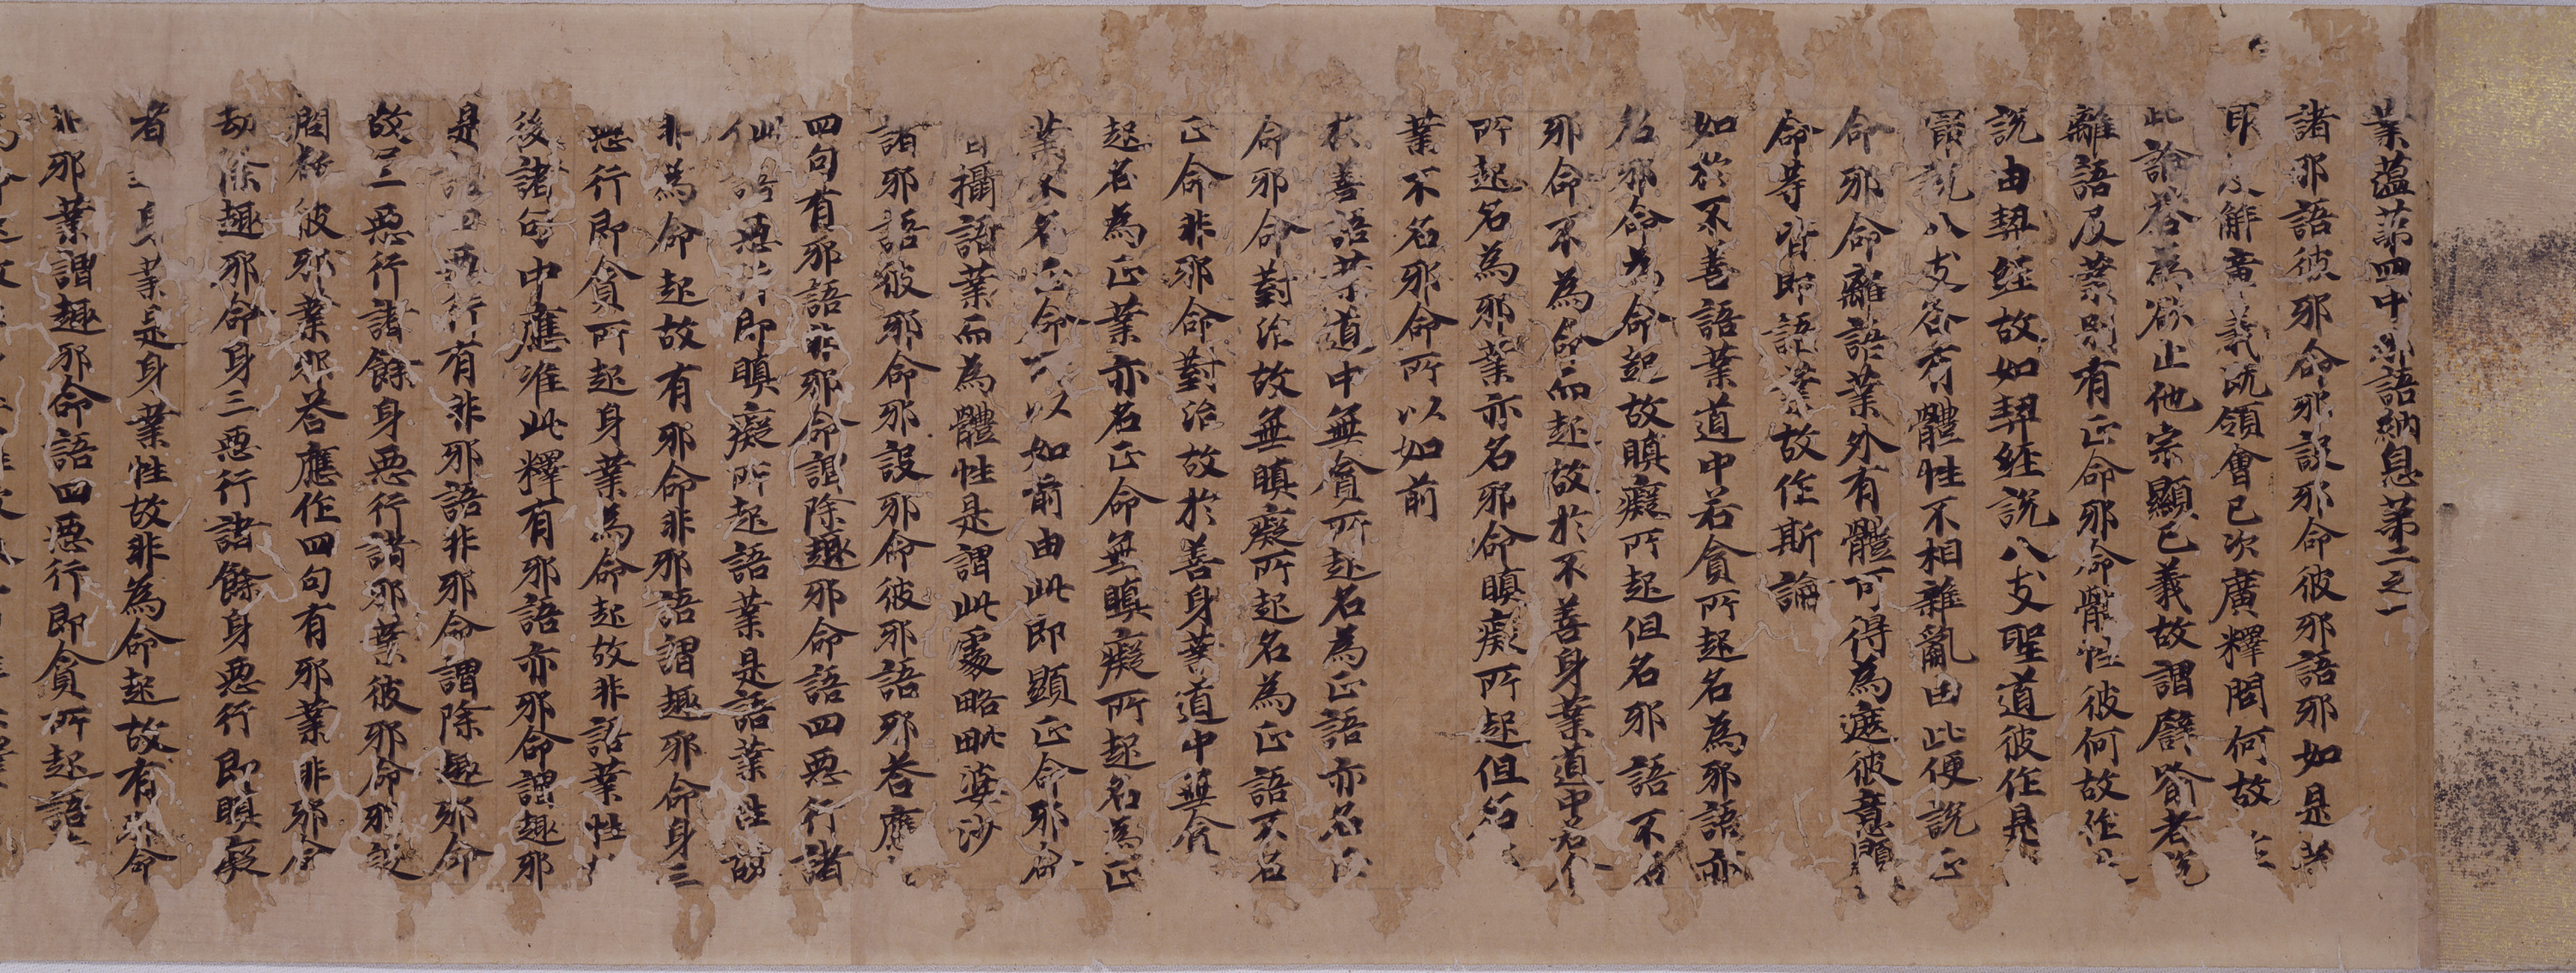 業蘊第四中邪語納息第二之一
諸邪語彼邪命邪設邪命彼邪語邪如是等
章及解章義既領會已次廣釋問何故作
此論答為欲止他宗顯已義故謂譬喻者說
離語及業別有正命邪命體性彼何故作
說由契經故如契經說八支聖道彼作是
當說八支各有體性不相雜亂由此便說正
命邪命離語業外有體可得為遮彼意顯
命等皆即語業故作斯論
如於不善語業道中若貪所起名為邪語亦
名邪命為命起故瞋癡所起但名邪語不名
邪命不為命而起故於不善身業道中若
所起名為邪業亦名邪命瞋癡所起但名
業不名邪命所以如前
於善語業道中無貪所起名為正語亦名
命邪命對治故無瞋癡所起名為正語不名
正命非邪命對治故於善身業道中無貪
起名為正業亦名正命無瞋癡所起名為正
業不名正命所以如前由此即顯正命邪命
攝語業而為體性是謂此處略毗婆沙
諸邪語彼邪命邪設邪命彼邪語邪答應
四句有邪語非邪命謂除趣邪命語四惡行諸
餘語惡行即瞋癡所起語業是語業性故
非為命起故有邪命非邪語謂趣邪命身三
惡行即貪所起身業為命起故非語業性
後諸句中應准此釋有邪語亦邪命謂趣邪
是語惡行有非邪語非邪命謂除趣邪命
故三惡行諸餘身惡行諸邪業彼邪命邪設
問邪彼邪業邪答應作四句有邪業非邪命
劫除趣邪命身三惡行諸餘身惡行即瞋癡
者身業是身業性故非為命起故有邪命
非邪業謂趣邪命語四惡行即貪所起語